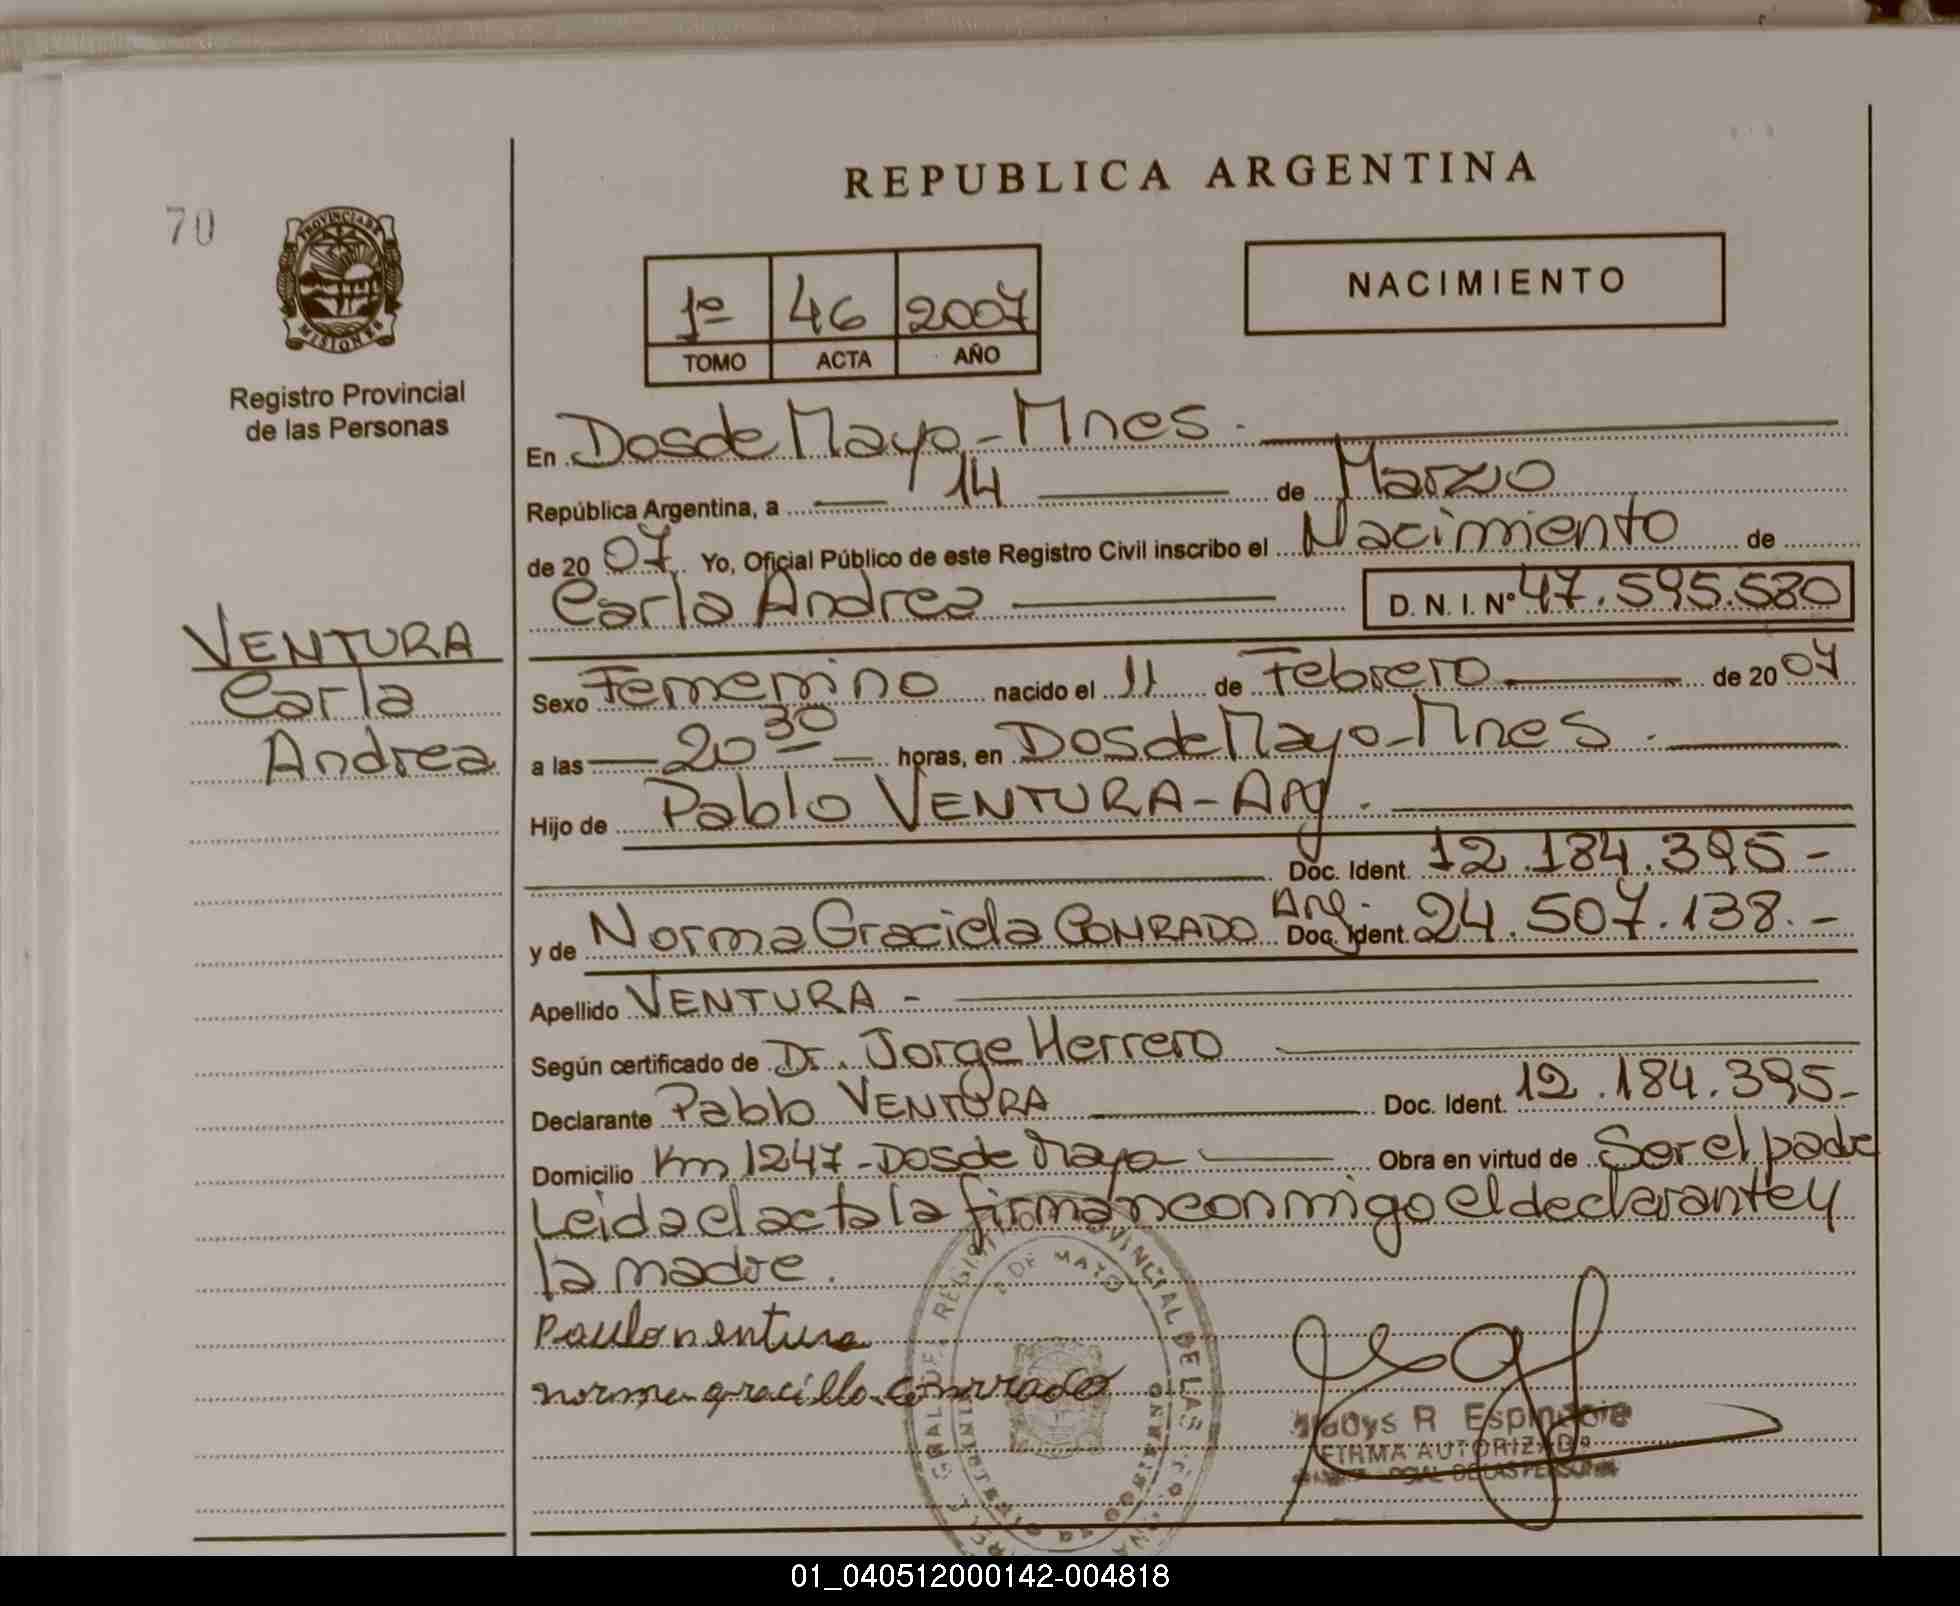 REPUBLICA ARGENTINA
70
PROVINCIA DE
MISIONES
Registro Provincial
de las Personas
1º 46 2007
TOMO ACTA AÑO
NACIMIENTO
VENTURA
Carla
Andrea
En Dos de Mayo - Mnes.
República Argentina, a 14 de Marzo
de 2007. Yo, Oficial Público de este Registro Civil inscribo el Nacimiento de
Carla Andrea D. N. I. Nº 47.595.580
Sexo Femenino nacido el 11 de Febrero de 2007
a las 20 30 horas, en Dos de Mayo - Mnes.
Hijo de Pablo VENTURA - Arg.
Doc. Ident. 12.184.395-
y de Norma Graciela CONRADO Arg. Doc. Ident. 24.507.138.-
Apellido VENTURA -
Según certificado de Dr. Jorge Herrero
Declarante Pablo VENTURA Doc. Ident. 12.184.395-
Domicilio Km 1247 - Dos de Mayo Obra en virtud de Ser el padre
Leida el acta la firman conmigo el declarante y
la madre.
Paulo ventura
norma gracilla conrrado
REGISTRO PROVINCIAL DE LAS
2 DE MAYO
R Espindola
FIRMA AUTORIZADA
DE LAS PERSONAS
01_040512000142-004818